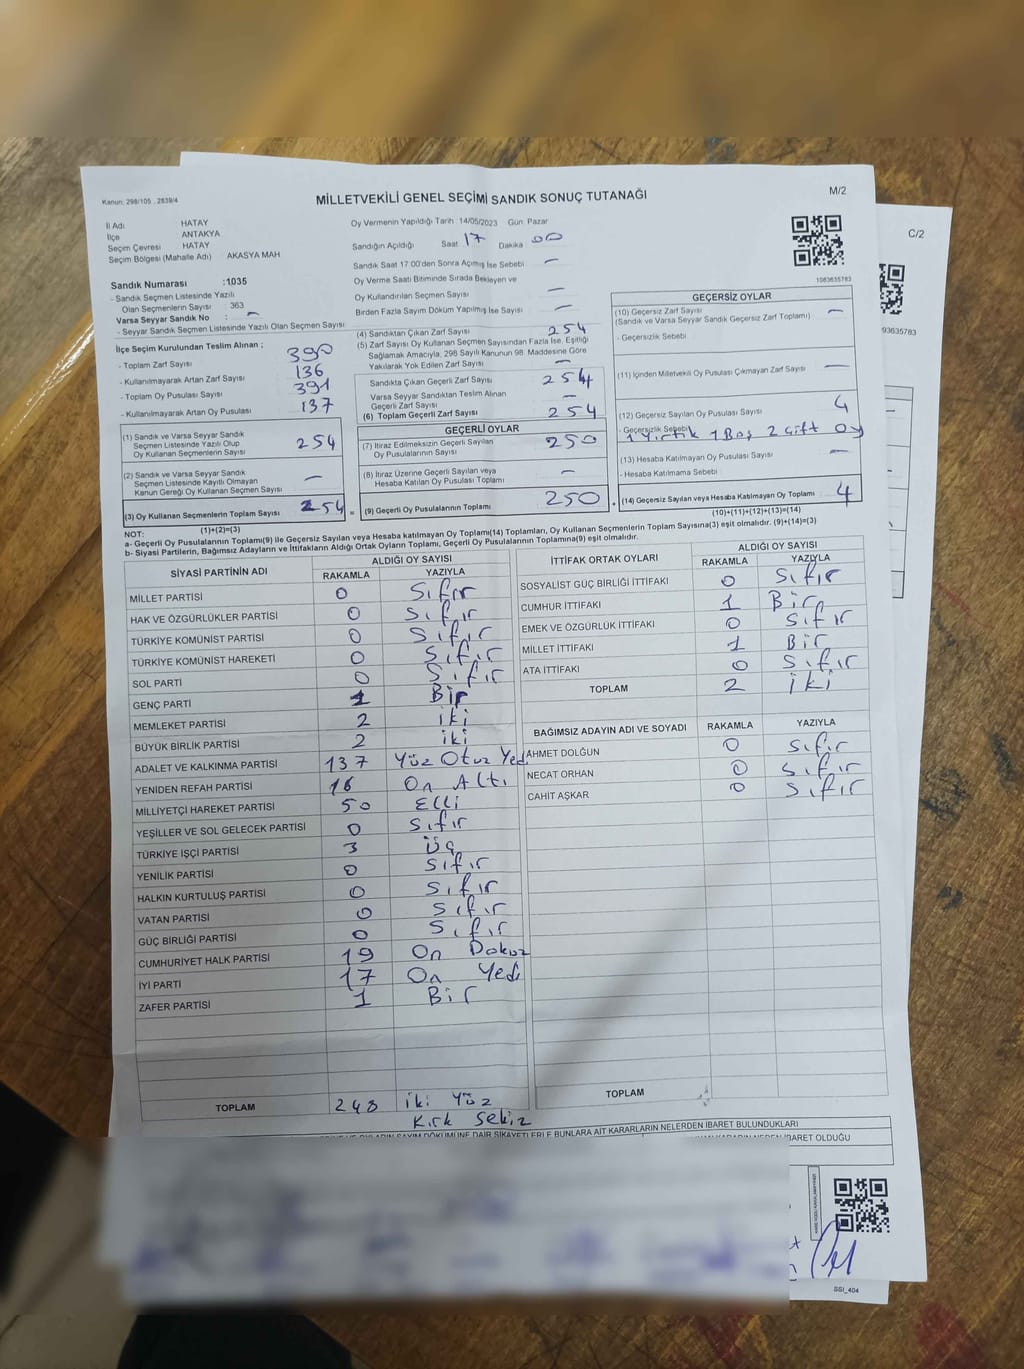 Kanun: 298/105 , 2839/4
MİLLETVEKİLİ GENEL SEÇİMİ SANDIK SONUÇ TUTANAĞI
M/2
C/2
İl Adı : HATAY
İlçe ANTAKYA
Seçim Çevresi HATAY
Seçim Bölgesi (Mahalle Adı) AKASYA MAH
Sandık Numarası :1035
- Sandık Seçmen Listesinde Yazılı
Olan Seçmenlerin Sayısı : 363
Varsa Seyyar Sandık No : -
- Seyyar Sandık Seçmen Listesinde Yazılı Olan Seçmen Sayısı:
İlçe Seçim Kurulundan Teslim Alınan ;
- Toplam Zarf Sayısı 390
- Kullanılmayarak Artan Zarf Sayısı 136
- Toplam Oy Pusulası Sayısı 391
- Kullanılmayarak Artan Oy Pusulası 137
(1) Sandık ve Varsa Seyyar Sandık
Seçmen Listesinde Yazılı Olup
Oy Kullanan Seçmenlerin Sayısı 254
(2) Sandık ve Varsa Seyyar Sandık
Seçmen Listesinde Kayıtlı Olmayan
Kanun Gereği Oy Kullanan Seçmen Sayısı -
(3) Oy Kullanan Seçmenlerin Toplam Sayısı 254 =
(1)+(2)=(3)
Oy Vermenin Yapıldığı Tarih :14/05/2023 Gün: Pazar
Sandığın Açıldığı Saat 17 Dakika 00
Sandık Saat 17:00'den Sonra Açılmış İse Sebebi : -
Oy Verme Saati Bitiminde Sırada Bekleyen ve
Oy Kullandırılan Seçmen Sayısı -
Birden Fazla Sayım Döküm Yapılmış İse Sayısı : -
(4) Sandıktan Çıkan Zarf Sayısı 254
(5) Zarf Sayısı Oy Kullanan Seçmen Sayısından Fazla İse, Eşitliği
Sağlamak Amacıyla, 298 Sayılı Kanunun 98. Maddesine Göre
Yakılarak Yok Edilen Zarf Sayısı -
Sandıkta Çıkan Geçerli Zarf Sayısı 254
Varsa Seyyar Sandıktan Teslim Alınan
Geçerli Zarf Sayısı -
(6) Toplam Geçerli Zarf Sayısı 254
GEÇERLİ OYLAR
(7) İtiraz Edilmeksizin Geçerli Sayılan
Oy Pusulalarının Sayısı 250
(8) İtiraz Üzerine Geçerli Sayılan veya
Hesaba Katılan Oy Pusulası Toplamı -
(9) Geçerli Oy Pusulalarının Toplamı 250
1083635783
93635783
GEÇERSİZ OYLAR
(10) Geçersiz Zarf Sayısı
(Sandık ve Varsa Seyyar Sandık Geçersiz Zarf Toplamı) : -
- Geçersizlik Sebebi :
(11) İçinden Milletvekili Oy Pusulası Çıkmayan Zarf Sayısı -
(12) Geçersiz Sayılan Oy Pusulası Sayısı 4
- Geçersizlik Sebebi: 1 Yırtık 1 Boş 2 Çift Oy
(13) Hesaba Katılmayan Oy Pusulası Sayısı -
- Hesaba Katılmama Sebebi :
(14) Geçersiz Sayılan veya Hesaba Katılmayan Oy Toplamı 4
(10)+(11)+(12)+(13)=(14)
NOT:
a- Geçerli Oy Pusulalarının Toplamı(9) ile Geçersiz Sayılan veya Hesaba katılmayan Oy Toplamı(14) Toplamları, Oy Kullanan Seçmenlerin Toplam Sayısına(3) eşit olmalıdır. (9)+(14)=(3)
b- Siyasi Partilerin, Bağımsız Adayların ve İttifakların Aldığı Ortak Oyların Toplamı, Geçerli Oy Pusulalarının Toplamına(9) eşit olmalıdır.
SİYASİ PARTİNİN ADI ALDIĞI OY SAYISI
RAKAMLA YAZIYLA
MİLLET PARTİSİ 0 Sıfır
HAK VE ÖZGÜRLÜKLER PARTİSİ 0 Sıfır
TÜRKİYE KOMÜNİST PARTİSİ 0 Sıfır
TÜRKİYE KOMÜNİST HAREKETİ 0 Sıfır
SOL PARTİ 0 Sıfır
GENÇ PARTİ 1 Bir
MEMLEKET PARTİSİ 2 iki
BÜYÜK BİRLİK PARTİSİ 2 iki
ADALET VE KALKINMA PARTİSİ 137 Yüz Otuz Yedi
YENİDEN REFAH PARTİSİ 16 On Altı
MİLLİYETÇİ HAREKET PARTİSİ 50 Elli
YEŞİLLER VE SOL GELECEK PARTİSİ 0 Sıfır
TÜRKİYE İŞÇİ PARTİSİ 3 Üç
YENİLİK PARTİSİ 0 Sıfır
HALKIN KURTULUŞ PARTİSİ 0 Sıfır
VATAN PARTİSİ 0 Sıfır
GÜÇ BİRLİĞİ PARTİSİ 0 Sıfır
CUMHURİYET HALK PARTİSİ 19 On Dokuz
İYİ PARTİ 17 On Yedi
ZAFER PARTİSİ 1 Bir
TOPLAM 248 iki Yüz
Kırk Sekiz
İTTİFAK ORTAK OYLARI ALDIĞI OY SAYISI
RAKAMLA YAZIYLA
SOSYALİST GÜÇ BİRLİĞİ İTTİFAKI 0 Sıfır
CUMHUR İTTİFAKI 1 Bir
EMEK VE ÖZGÜRLÜK İTTİFAKI 0 Sıfır
MİLLET İTTİFAKI 1 Bir
ATA İTTİFAKI 0 Sıfır
TOPLAM 2 iki
BAĞIMSIZ ADAYIN ADI VE SOYADI RAKAMLA YAZIYLA
AHMET DOLĞUN 0 Sıfır
NECAT ORHAN 0 Sıfır
CAHİT AŞKAR 0 Sıfır
TOPLAM
OYLARIN SAYIM DÖKÜMÜNE DAİR ŞİKAYETLERLE BUNLARA AİT KARARLARIN NELERDEN İBARET BULUNDUKLARI
İBARET OLDUĞU
SSI_404